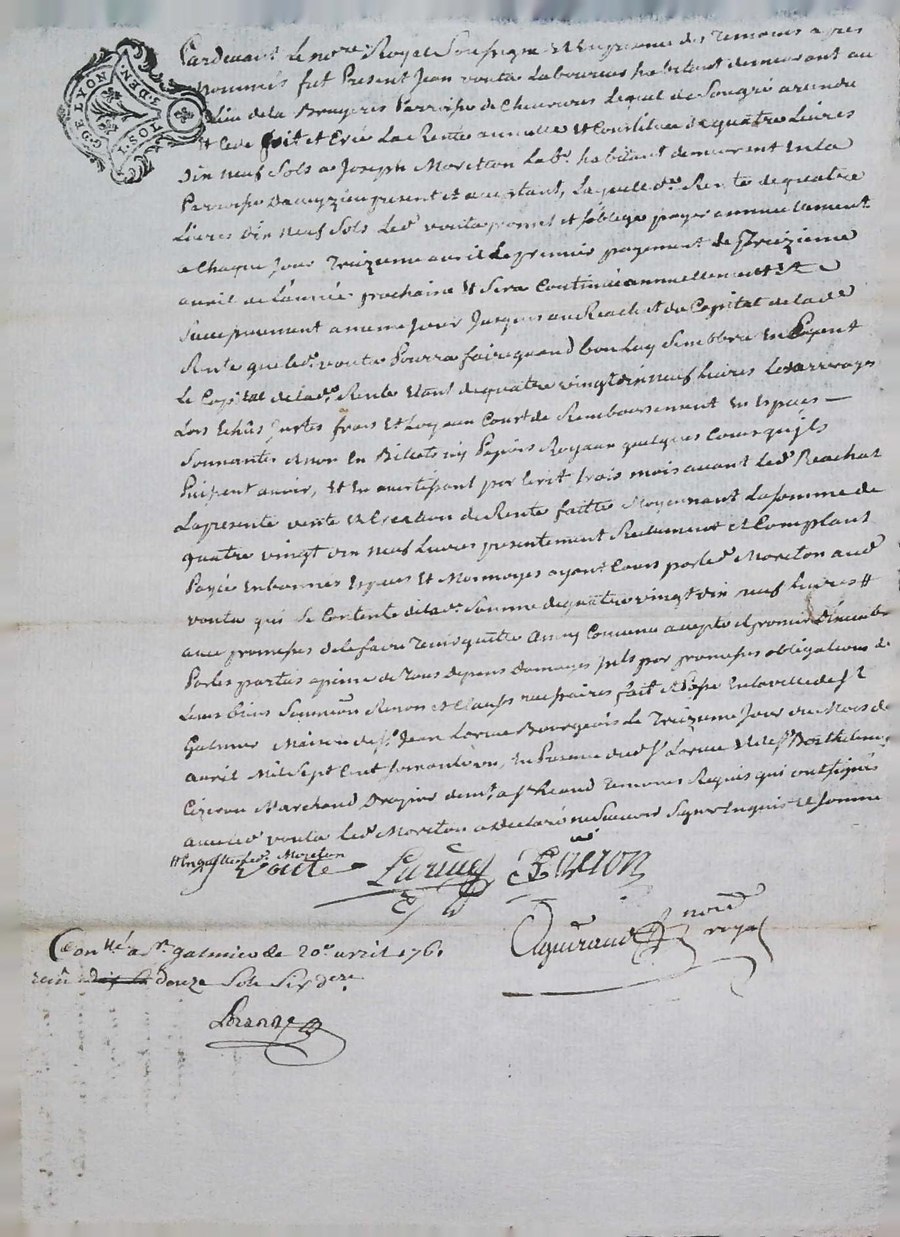 G. DE LYON 2. DEN. 1 SOL
Pardevant Le no.re Royal Soussigne Et En presence des temoins apres
nommés fut Present Jean voute Laboureur habitant demeurant au
Lieu de la Bruyeres Parroisse de Chevrieres Lequel de Son gré a vendu
Et Cede et Créé La Rente annuelle Et Constituée de quatre Livres
Dix neuf Sols a Joseph Moretton Lab.r habitant demeurant En La
Parroisse present et acceptant, Laquelle d.e Rente de quatre
Livres Dix neuf Sols Led. voute promet et soblege payer annuellement
a Chaque Jour Treizieme avril Le premier payement de Treizieme
avril de L'année prochaine Et Sera Continué annuellement Et
Successivement a meme Jour Jusques au Reachat du Capital de lad.e
Rente que led. voute Pourra faire quand bon Luy Semblera En Payant
Le Capital de lad. Rente Etant de quatre vingt dix neuf Livres Les arrerages
Lors Echûs Justes frais Et Loyaux Court de Remboursement En Especes
Sonnantes Et non En Billets ny Papiers Royaux quelques Cours qu'jls
Puissent avoir, Et En avertissant par Ecrit trois mois avant Led. Reachat
La presente vente Et Creation de Rente faitte Moyennant La somme de
quatre vingt dix neuf Livres presentement Reelement et Comptant
Payée En bonnes Especes Et Monnoyes ayant Cours par led. Moretton aud.
voute qui Se Contente de lad. Somme de quatre vingt dix neuf Livres #
aux promesses de le faire accepté et promis
Par les parties a peine de Tous depens Domages par promesses obligations de
Leurs biens Renon et Clauses fait Et En la ville de S.t
Galmier Maison de S.r Jean Larue Bourgeois Le Treizieme Jour du Mois de
avril Mil Sept Cent soixante En Presence dud. S.r Larue Et de S.r Barthelemy
Cizeron Marchand Drapier dem.t a S.t temoins Requis qui ont signés
avec led. voute Led. Moretton a Déclaré ne Scavoir Signer Enquis Et Somme
Led. Moretton
Voute Larue Cizeron
no.re
royal
Con.llé a S.t galmier de 20.e avril 176
recû douze Sols Six d.ers